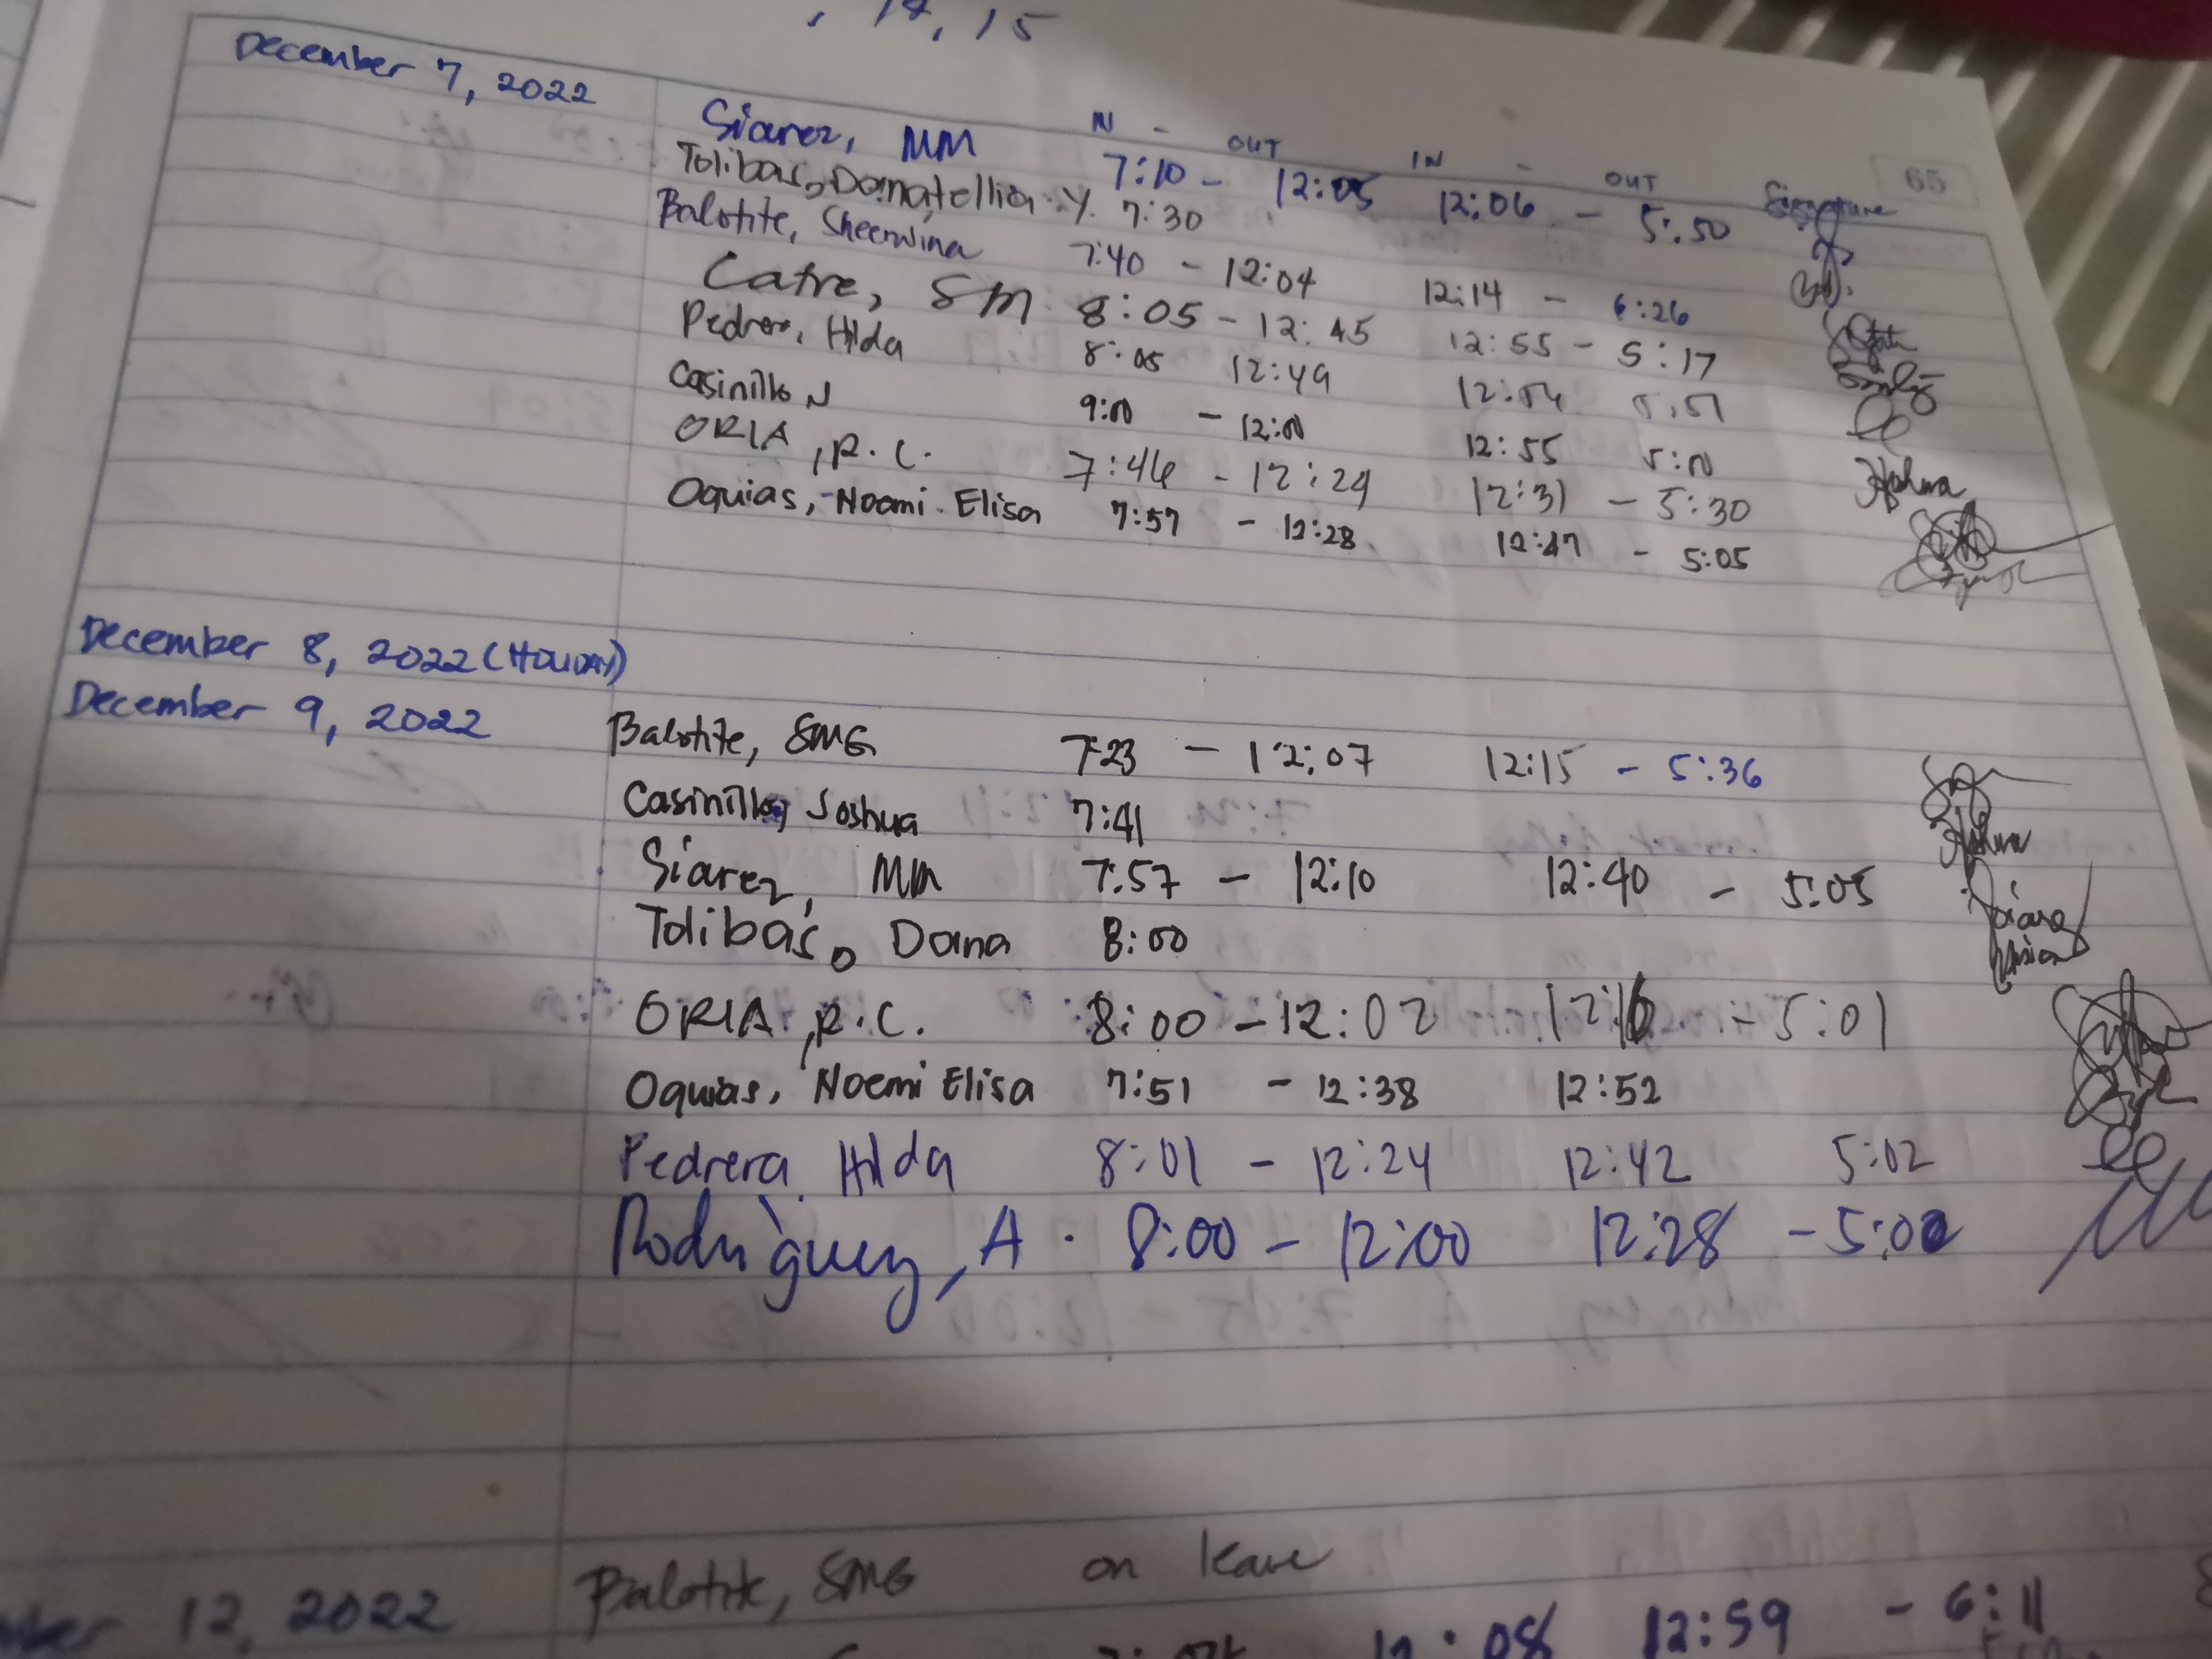 , 18, 15
December 7, 2022
IN - OUT IN - OUT Signature
65
Siarez, MM 7:10 - 12:05 12:06 - 5:50
Tolibas, Domatellia Y. 7:30
Balotite, Sheerwina 7:40 - 12:04 12:14 - 6:26
Catre, SM 8:05 - 12:45 12:55 - 5:17
Hilda 8:05 12:49 12:54 5:51
Casinillo N 9:00 - 12:00 12:55 5:00
ORIA, R.C. 7:46 - 12:24 12:31 - 5:30
Oquias, Noemi Elisa 7:57 - 12:28 12:47 - 5:05
December 8, 2022 (HOLIDAY)
December 9, 2022
Balotite, SMG 7:23 - 12:07 12:15 - 5:36
Casinillo, Joshua 7:41
Siarez, MM 7:57 - 12:10 12:40 - 5:05
Tolibas, Dana 8:00
ORIA, R.C. 8:00 - 12:02 12:16 - 5:01
Oquias, Noemi Elisa 7:51 - 12:38 12:52
Pedrera, Hilda 8:01 - 12:24 12:42 5:02
Rodriguez, A. 8:00 - 12:00 12:28 - 5:00
12, 2022
Balotite, SMG on leave
12:08 12:59 - 6:11